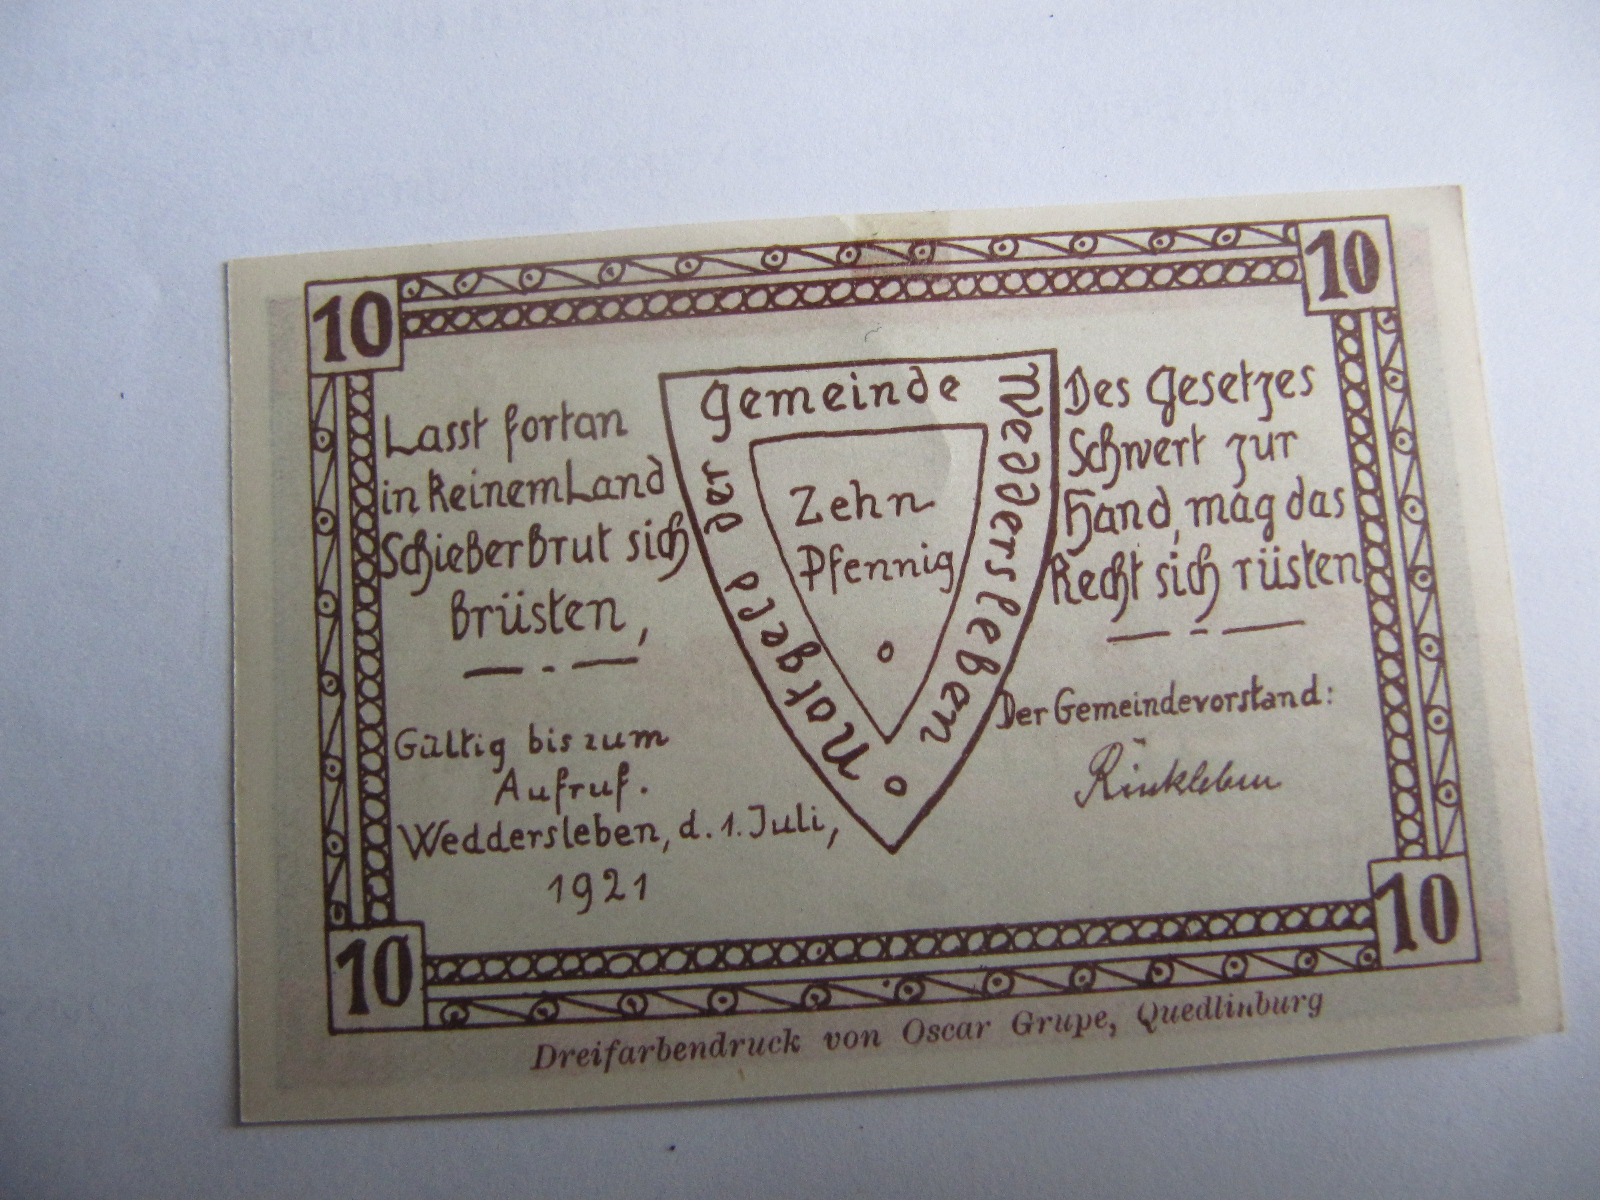 10
10
Lasst fortan
in keinem Land
Schieberbrut sich
brüsten,
Gültig bis zum
Aufruf.
Weddersleben, d. 1. Juli,
1921
Notgeld der
Gemeinde
Weddersleben
Zehn
Pfennig
Des Gesetzes
Schwert zur
Hand, mag das
Recht sich rüsten
Der Gemeindevorstand:
Rinkleben
10
10
Dreifarbendruck von Oscar Grupe, Quedlinburg